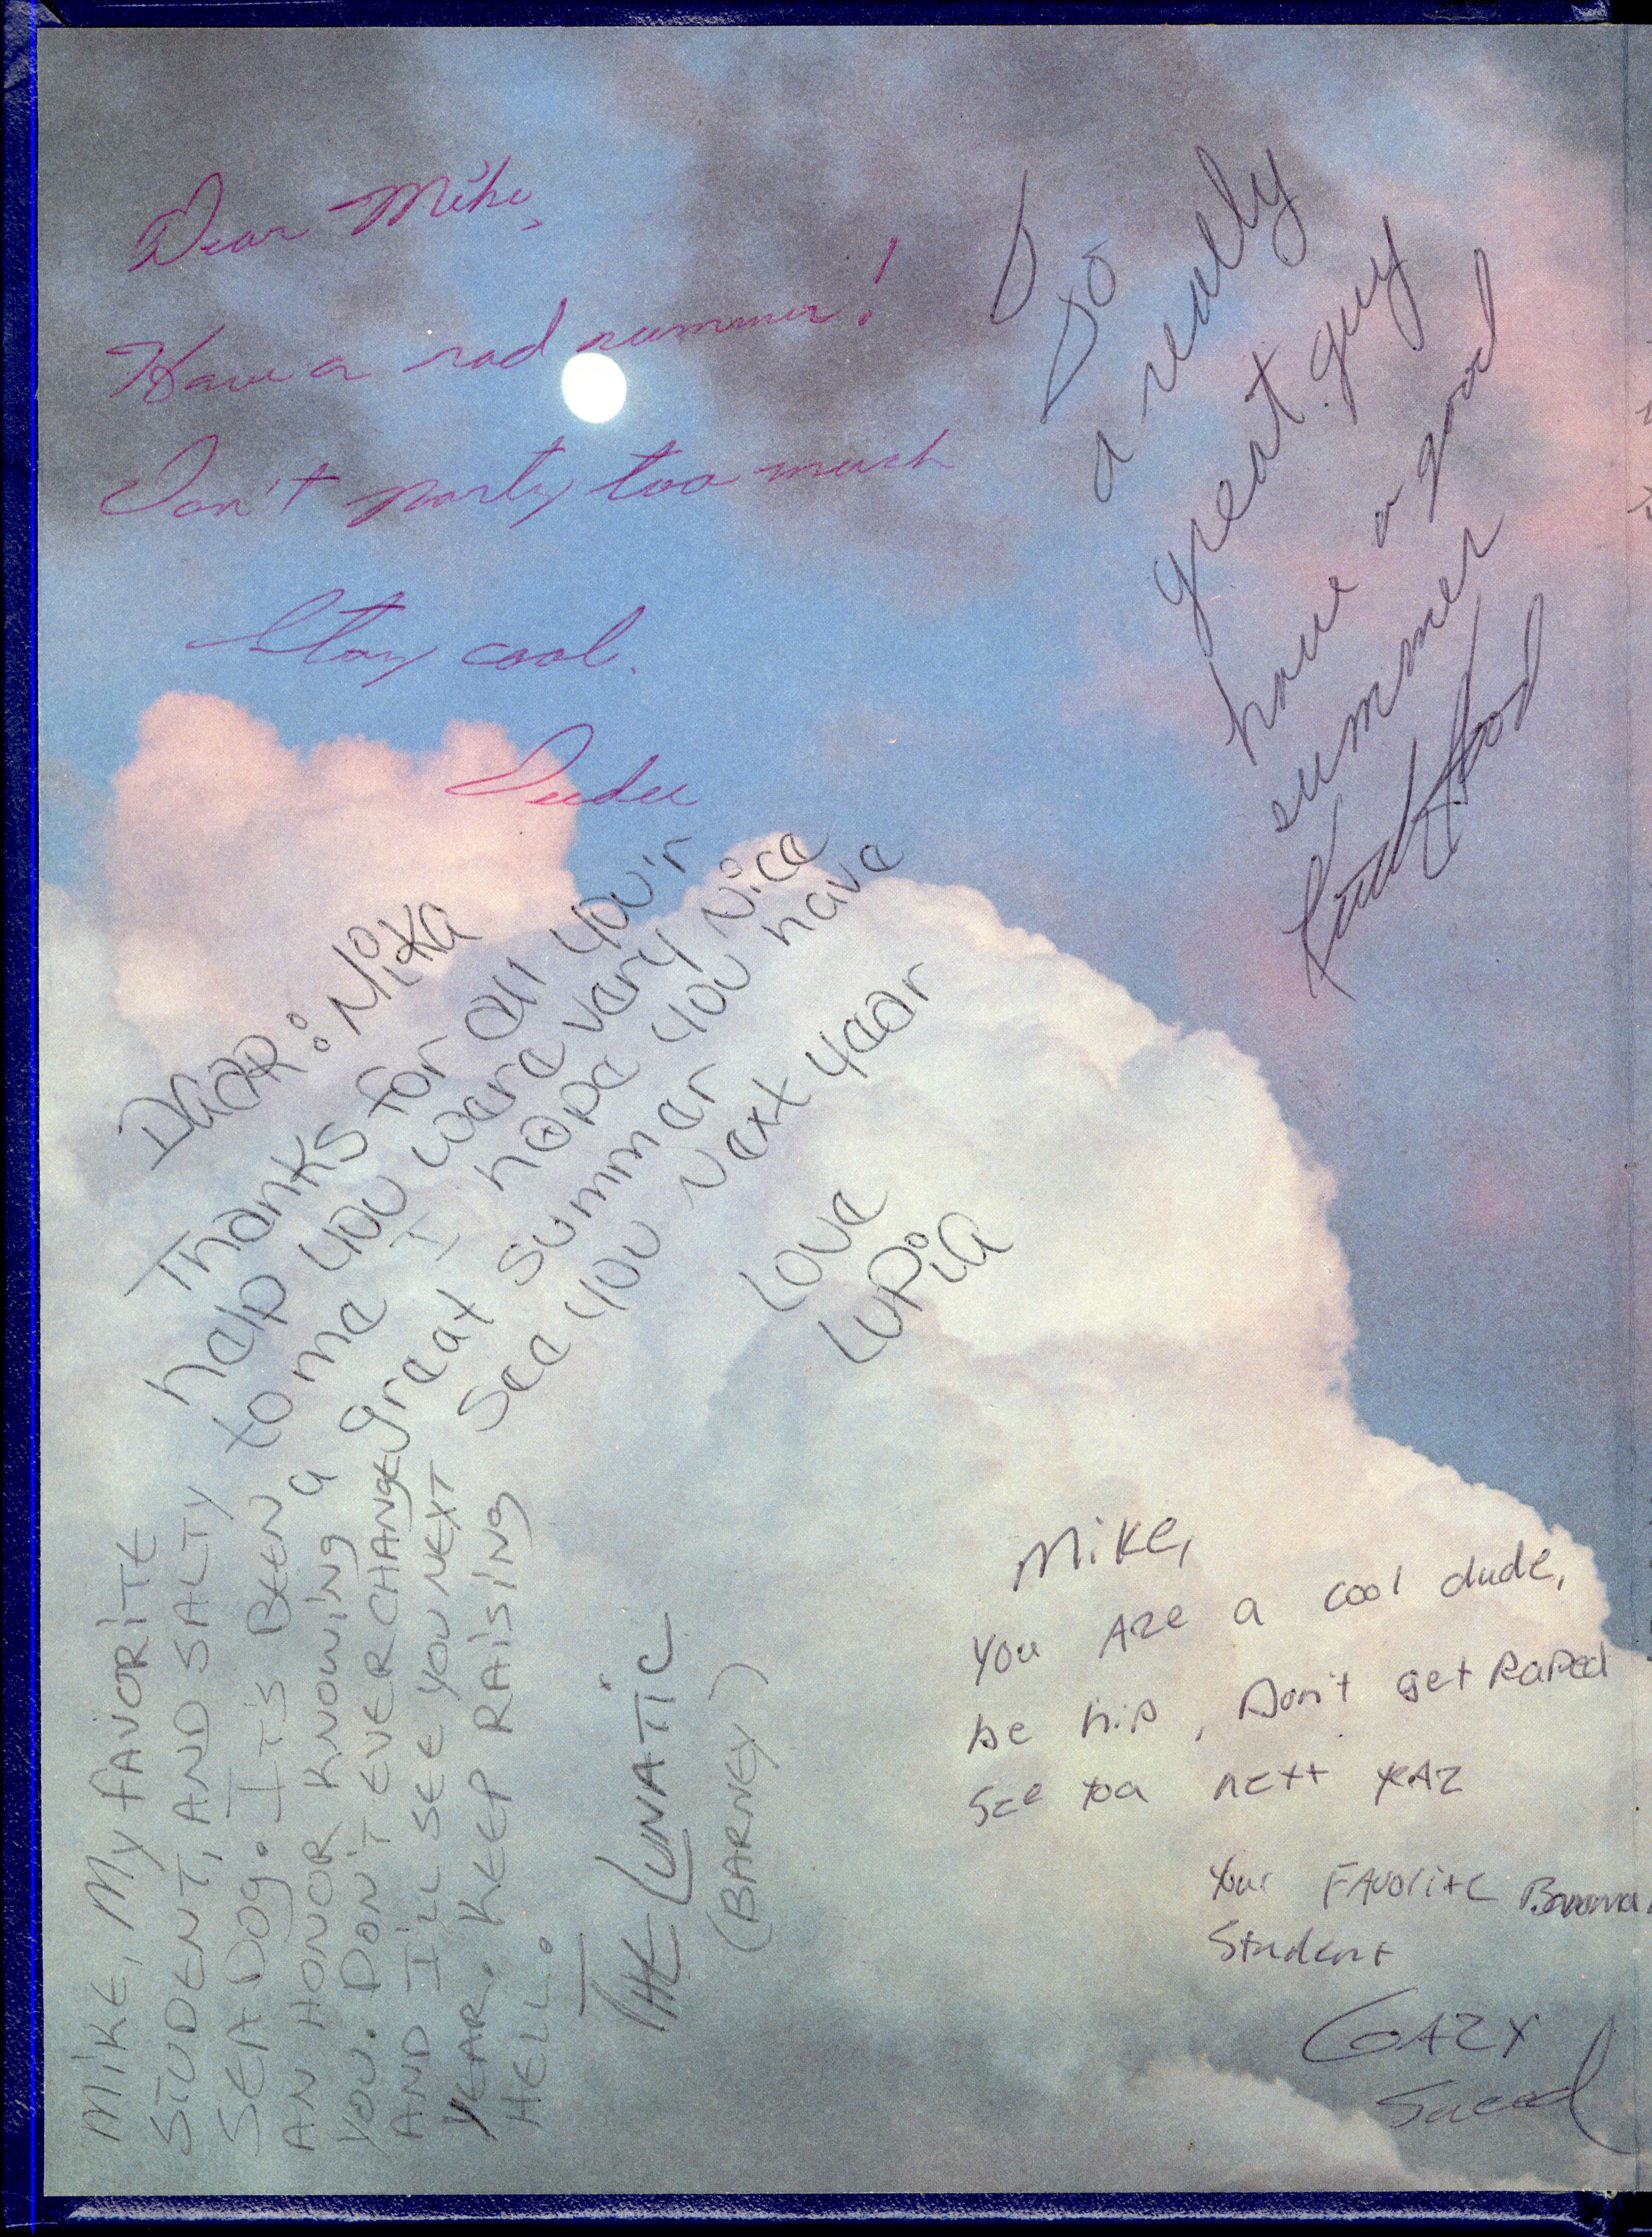 Dear Mike,
Have a rad summer!
Don't party too much
Stay cool.
To
a really
great guy
have a good
summer
Hood
DEAR: MiKe
Thanks for all your
help you were very nice
to me I hope you have
a great summer
see you Next year
Love
LuPiA
MiKE, My fAVORiTE
STUDENT, AND SALTY
SEA DOg. IT'S BEEN
AN HONOR KNOWiNg
YOU. DON'T EVER CHANgE
AND I'LL SEE YOU NEXT
YEAR. KEEP RAiSiNg
HELL.
THE LUNATiC
(BARNEY)
Mike,
You Are a cool dude,
be hip, Don't get Raped
See you next year
Your FAvorite
Student
GARY